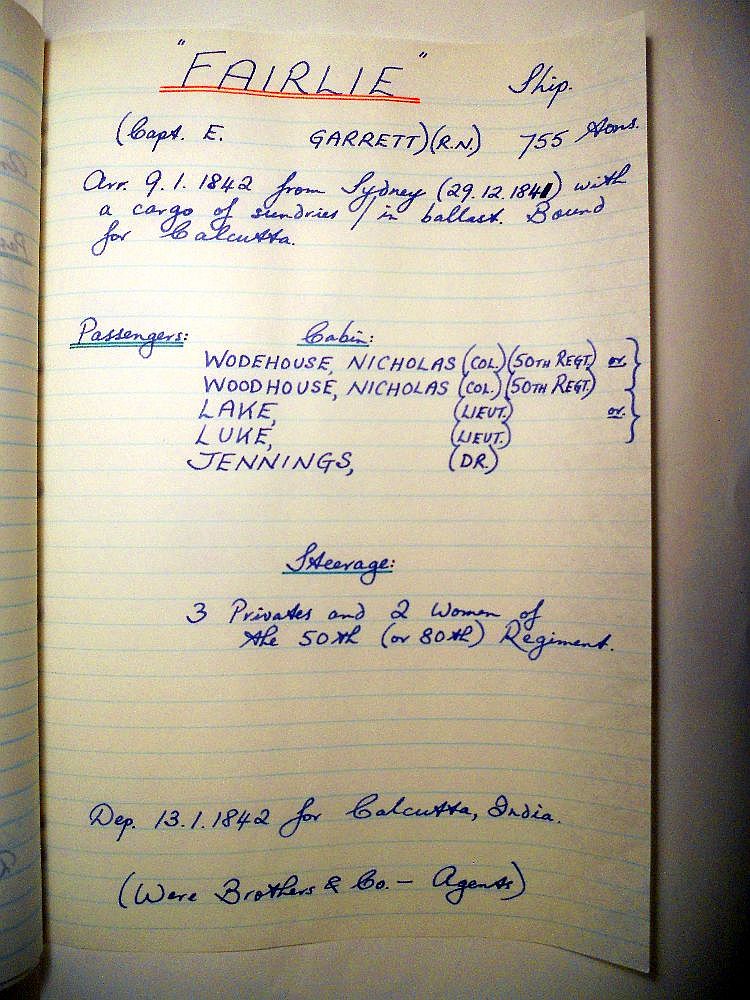 "FAIRLIE" Ship.
(Capt. E. GARRETT) (R.N.) 755 tons.
Arr. 9.1.1842 from Sydney (29.12.1841) with
a cargo of sundries / in ballast. Bound
for Calcutta.
Passengers: Cabin:
WODEHOUSE, NICHOLAS (COL.) (50TH REGT.) or.
WOODHOUSE, NICHOLAS (COL.) (50TH REGT.)
LAKE, (LIEUT.) or.
LUKE, (LIEUT.)
JENNINGS, (DR.)
Steerage:
3 Privates and 2 Women of
the 50th (or 80th) Regiment.
Dep. 13.1.1842 for Calcutta, India.
(Were Brothers & Co. - Agents)